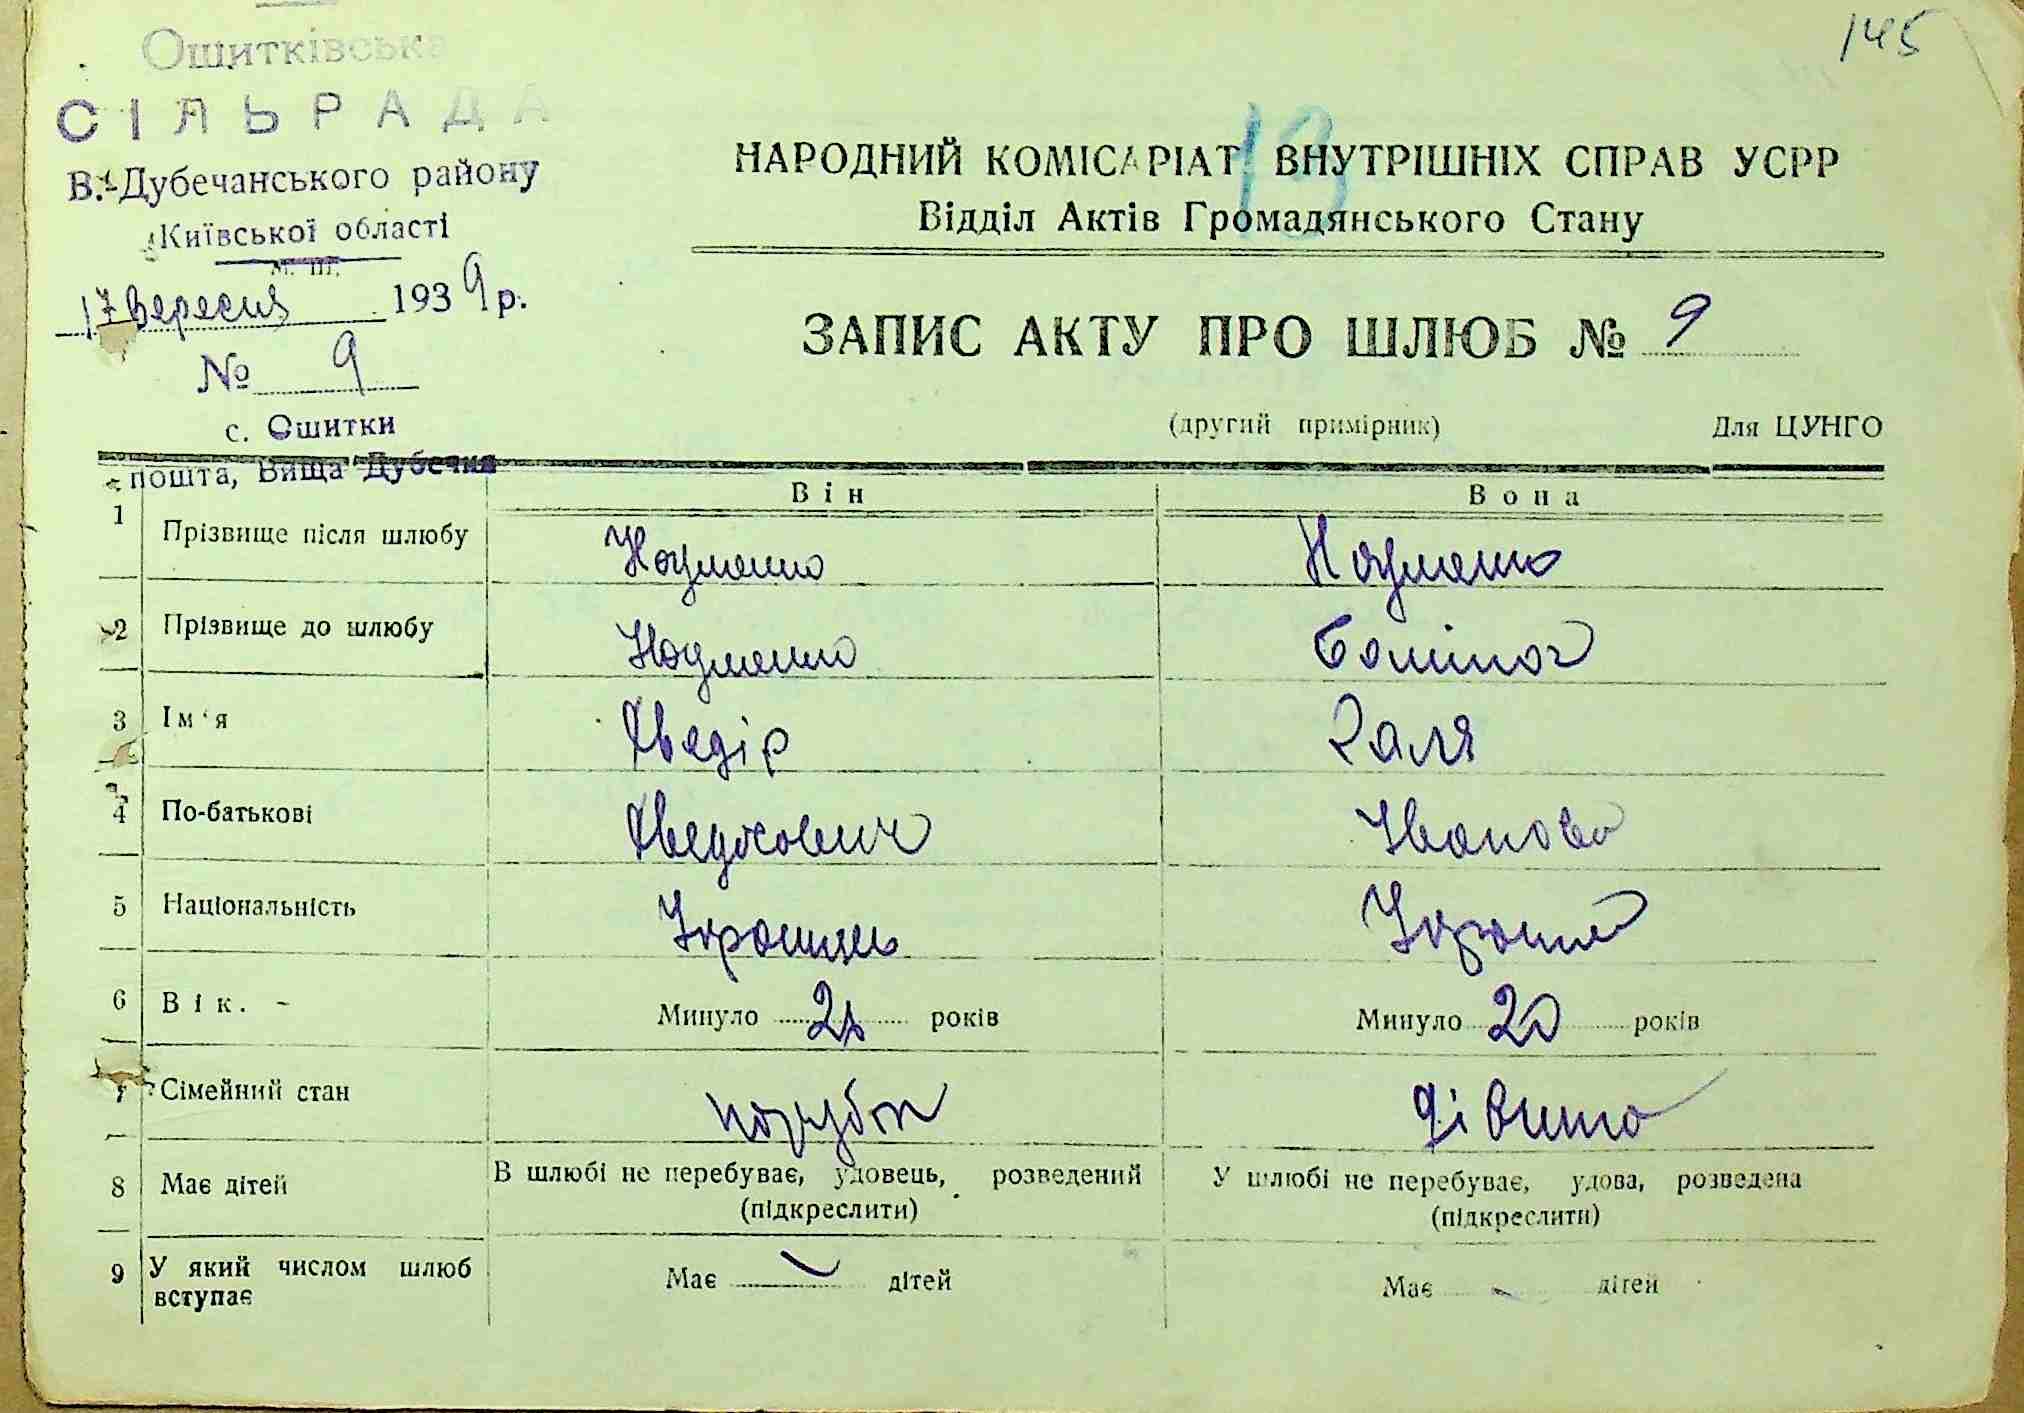 145
Ошитківська
СІЛЬРАДА
В.-Дубечанського району
Київської області
М. П.
17 вересня 1939 р.
№ 9
с. Ошитки
пошта, Вища Дубечня
13
НАРОДНИЙ КОМІСАРІАТ ВНУТРІШНІХ СПРАВ УСРР
Відділ Актів Громадянського Стану
ЗАПИС АКТУ ПРО ШЛЮБ № 9
(другий примірник) Для ЦУНГО
Він Вона
1 Прізвище після шлюбу Науменко Науменко
2 Прізвище до шлюбу Науменко
3 Ім'я Хведір Галя
4 По-батькові Хведорович Іванова
5 Національність Українець Українка
6 Вік. - Минуло років Минуло 20 років
7 Сімейний стан парубок дівчина
8 Має дітей В шлюбі не перебуває, удовець, розведений У шлюбі не перебуває, удова, розведена
(підкреслити) (підкреслити)
9 У який числом шлюб вступає Має — дітей Має - дітей